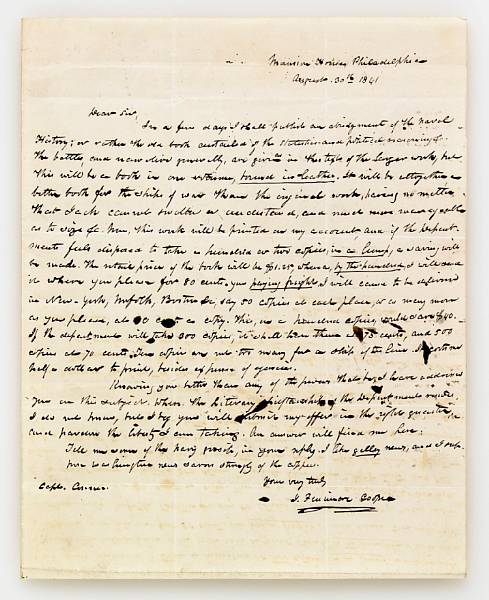 Mansion House, Philadelphia
August 30th 1841
Dear Sir,
In a few days I shall publish an abridgment of the naval
History, or rather the old book curtailed of the and political
The battles and narrative generally, are given in the style of the larger work, but
this will be a book in one volume, bound in leather. It will be altogether a
better book for the ships of war than the original work, having no matter
that Jack cannot swallow or understand, and much more manageable
as to size &c. Now, this work will be printed on my account, and if the Depart-
ment feels disposed to take a hundred or two copies, in a lump, a saving will
be made. The retail price of the book will be $1.25, whereas, by the hundred, I will send
it where you please for 80 cents, you paying freight. I will cause to be delivered
in New-York, Norfolk, Boston &c, say 50 copies at each place, or as many more
as you please, at 80 cents a copy. This, on a hundred copies, would save $40.
If the department will take 300 copies, it shall have them at 75 cents, and 500
copies at 70 cents. copies are not too many for a ship of the line. It costs me
half a dollar to print, besides expense of agencies.
Knowing you better than any of the powers that be, I have addressed
you on this subject. Where the literary of the Department resides,
I do not know, but I beg you will submit my offer in the right quarter,
and pardon the liberty I am taking. An answer will find me here.
Tell me some of the navy gossip, in your reply. I like galley news, and
Washington news savors strongly of the
Yours very truly
J. Fenimore Cooper
Capt.